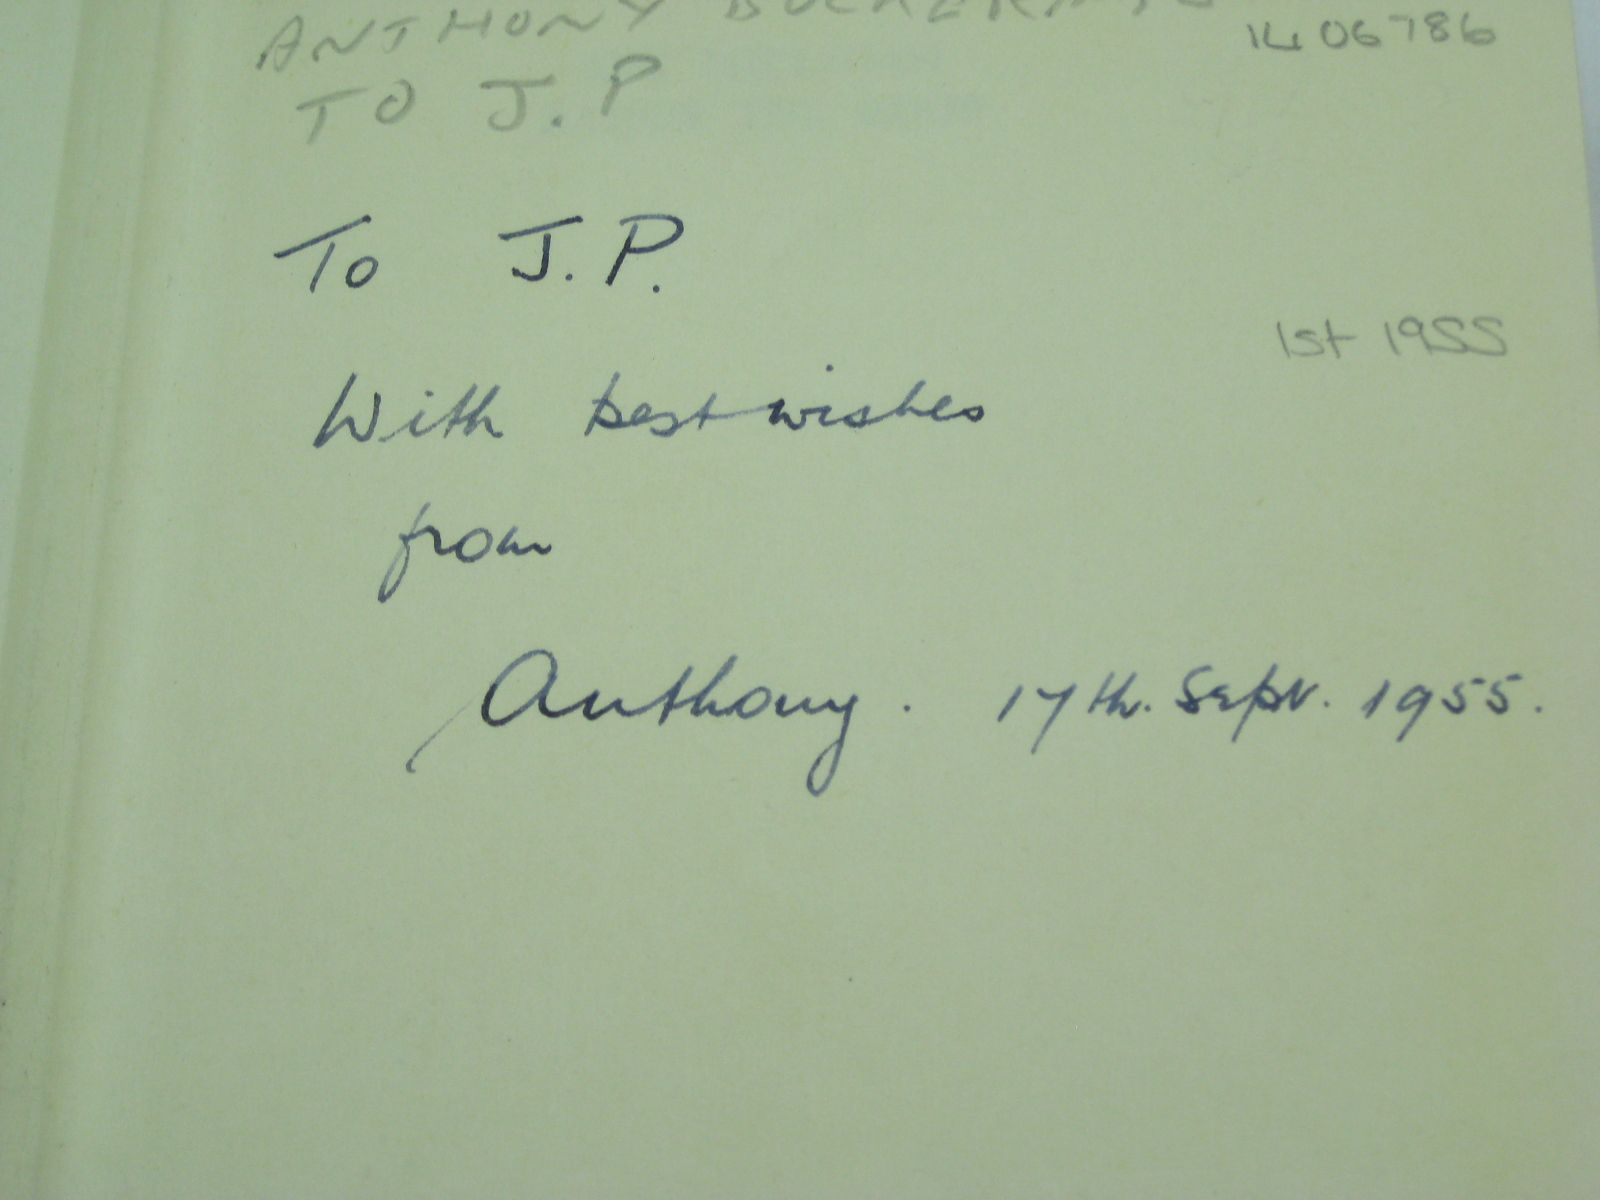 ANTHONY
1406786
TO J.P
To J.P.
1st 1955
With best wishes
from
Anthony. 17th. Sept. 1955.